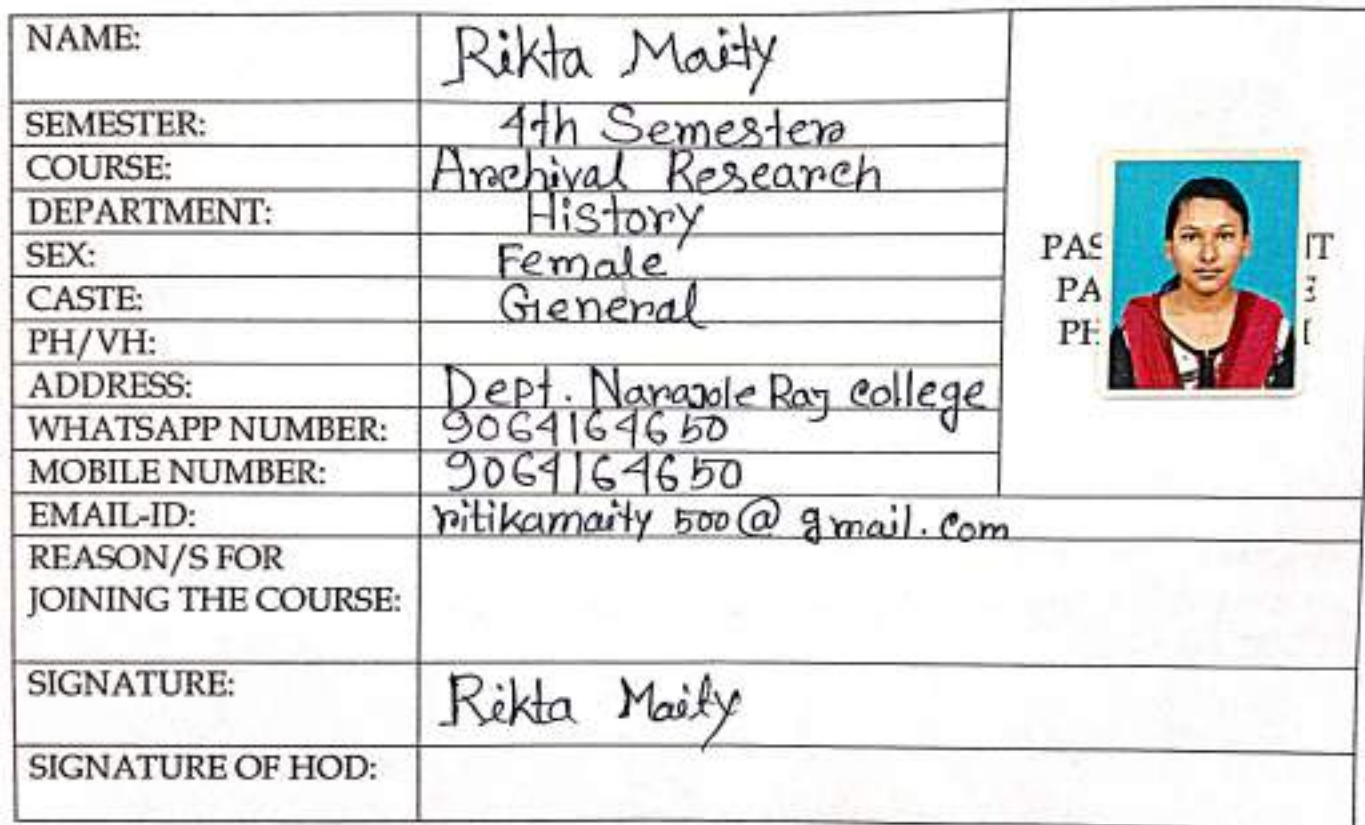 NAME: Rikta Maity
SEMESTER: 4th Semester
COURSE: Archival Research
DEPARTMENT: History
SEX: Female
CASTE: General
PH/VH:
ADDRESS: Dept. Narajole Raj college
WHATSAPP NUMBER: 9064164650
MOBILE NUMBER: 9064164650
EMAIL-ID: ritikamaity500@gmail.com
REASON/S FOR
JOINING THE COURSE:
SIGNATURE: Rikta Maity
SIGNATURE OF HOD: